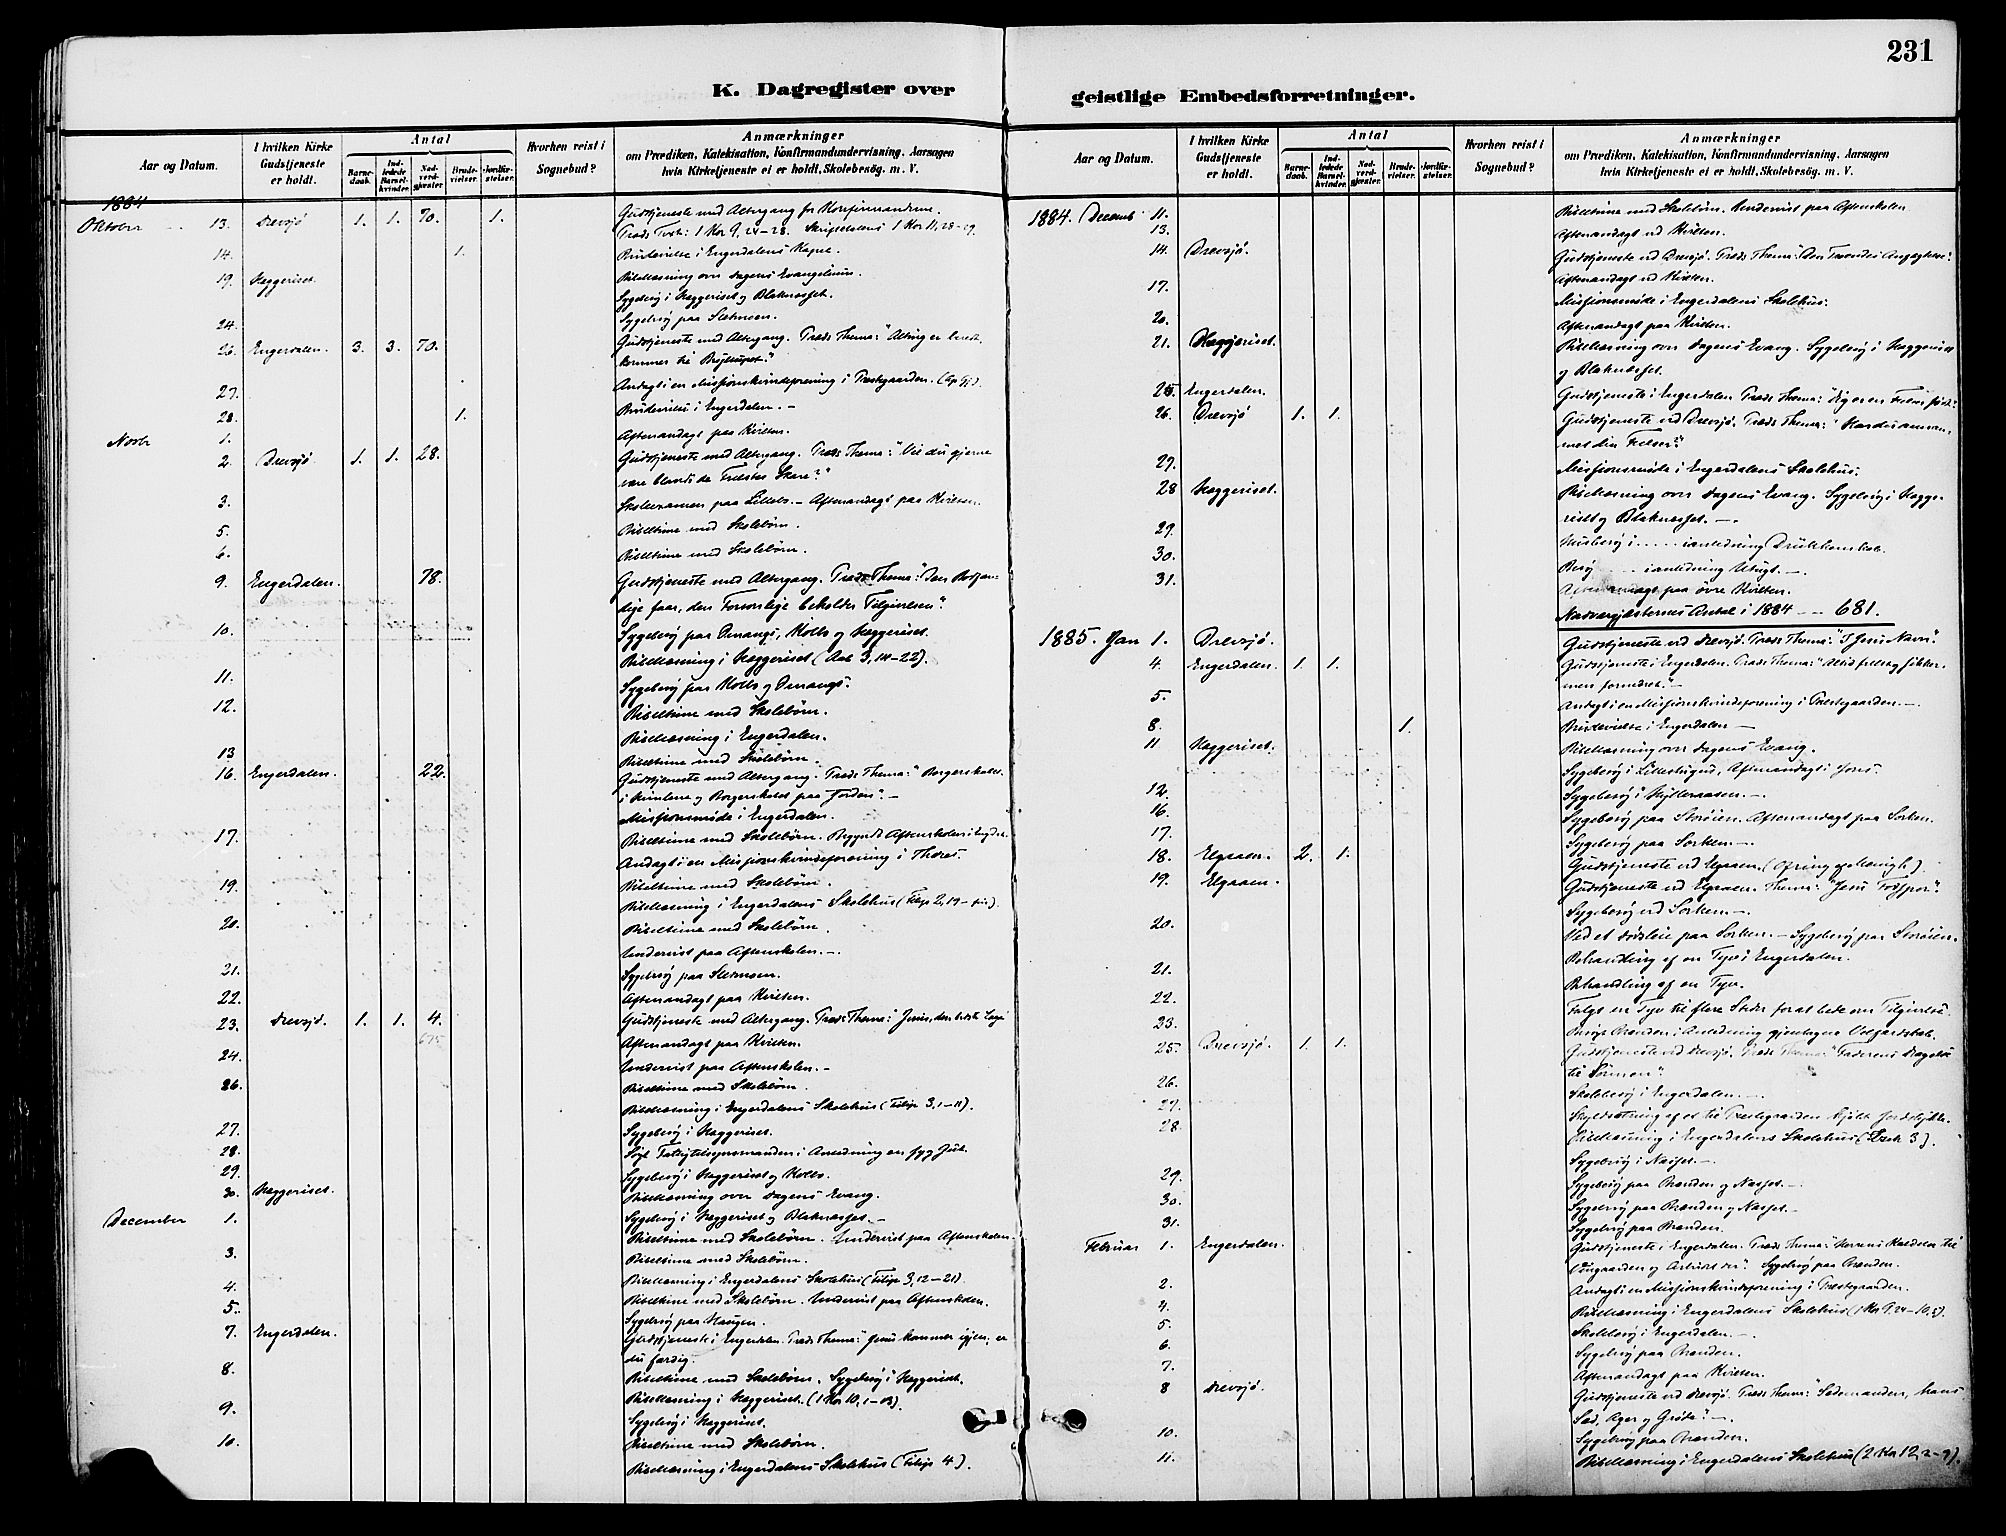 231
K. Dagregister over
geistlige Embedsforretninger.
Aar og Datum.
I hvilken Kirke Gudstjeneste er holdt.
Antal
Barne-daab.
Ind-ledede Barsel-kvinder.
Nad-verd-gjester.
Brude-vielser.
Jordfæ-stelser.
Hvorhen reist i Sognebud?
Anmærkninger
om Prædiken, Katekisation, Konfirmandundervisning. Aarsagen
hvis Kirketjeneste ei er holdt, Skolebesøg. m. V.
1884
Oktober 13. Drevsjø 1. 1. 70. 1. Gudstjeneste med Altergang for Konfirmanderne.
1 Kor 9, 24-28. 1 Kor 11, 28-29.
14. 1. Brudevielse i Engerdalens Kapel.
19. Hæggeriset. Bibellæsning over Dagens Evangelium.
Sygebesøg i Hæggeriset og Blaknæsset.
24. Sygebesøg paa Sletmoen.
26. Engerdalen. 3. 3. 70. Gudstjeneste med Altergang. Præds Thema: "Alting er beredt.
kommer til Bryllupet."
27. Andagt i en Missionskvindeforening i Præstegaarden.
28. 1. Brudevielse i Engerdalen. -
Novbr 1. Aftenandagt paa Kvilten.
2. Drevsjø. 1. 1. 28. Gudstjeneste med Altergang. Præds Thema: "Vil du gjerne
være blandt de Frelstes Skare?"
3. Skoleexamen paa Lillebo. - Aftenandagt paa Kvilten.
5. Bibeltime med Skolebørn.
6. Bibeltime med Skolebørn.
9. Engerdalen. 78. Gudstjeneste med Altergang. Præds Thema: "Den Bodfær-
dige faar, den Forsonlige beholder Tilgivelsen".
10. Sygebesøg paa Hollo og Hæggeriset.
Bibellæsning i Hæggeriset (Aab 3, 14-22).
11. Sygebesøg paa Hollo og
12. Bibeltime med Skolebørn.
Bibellæsning i Engerdalen.
13 Bibeltime med Skolebørn.
16. Engerdalen. 22. Gudstjeneste med Altergang. Præds Thema: "Borgerskabet
i Himlene og Borgerskabet paa Jorden". -
Missionsmøde i Engerdalen.
17. Bibeltime med Skolebørn. Begyndt Aftenskolen i
Andagt i en Missionskvindeforening i
19. Bibeltime med Skolebørn.
Bibellæsning i Engerdalens Skolehus (Filip 2, 19-fin).
20. Bibeltime med Skolebørn.
Undervist paa Aftenskolen. -
21. Sygebesøg paa Sletmoen.
22. Aftenandagt paa Kvilten.
23. Drevsjø. 1. 1. 4. Gudstjeneste med Altergang. Præds Thema: "Jesus, den bedste Læge"
675 Aftenandagt paa Kvilten.
24. Undervist paa Aftenskolen. -
26. Bibeltime med Skolebørn.
Bibellæsning i Engerdalens Skolehus (Filip 3, 1-11).
27. Sygebesøg i Hæggeriset.
28. Søgt Fattigtilsynsmanden i Anledning en syg
29. Sygebesøg i Hæggeriset og Hollo.
30. Hæggeriset. Bibellæsning over Dagens Evang.
Sygebesøg i Hæggeriset og Blaknæsset. -
December 1. Bibeltime med Skolebørn. Undervist paa Aftenskolen.
3. Bibeltime med Skolebørn.
Bibellæsning i Engerdalens Skolehus (Filip 3, 12-21).
4. Bibeltime med Skolebørn. Undervist paa Aftenskolen.
5. Sygebesøg paa Haugen.
7. Engerdalen. Gudstjeneste i Engerdalen. Præds Thema: "Jesus kommer igjen; er
du færdig.
8. Bibeltime med Skolebørn. Sygebesøg i Hæggeriset.
Bibellæsning i Hæggeriset. (1 Kor 10, 1-13).
9. Sygebesøg i Hæggeriset.
10. Bibeltime med Skolebørn.
Bibellæsning i Engerdalens Skolehus (Filip 4).
Aar og Datum.
I hvilken Kirke Gudstjeneste er holdt.
Antal
Barne-daab.
Ind-ledede Barsel-kvinder.
Nad-verd-gjester.
Brude-vielser.
Jordfæ-stelser.
Hvorhen reist i Sognebud?
Anmærkninger
om Prædiken, Katekisation, Konfirmandundervisning. Aarsagen
hvis Kirketjeneste ei er holdt, Skolebesøg. m. V.
1884. Decemb 11. Bibeltime med Skolebørn. Undervist paa Aftenskolen
13. Aftenandagt ved Kvilten.
14. Drevsjø. Gudstjeneste ved Drevsjø. Præds Thema:
Aftenandagt ved Kvilten.
17. Missionsmøde i Engerdalens Skolehus.
20. Aftenandagt paa Kvilten.
21. Hæggeriset. Bibellæsning over Dagens Evang. Sygebesøg i Hæggeriset
og Blaknesset.
25. Engerdalen. Gudstjeneste i Engerdalen Præds Thema:
26. Drevsjø 1. 1. Gudstjeneste ved Drevsjø. Præds Thema: "Har du annam-
met din Frelser?"
27. Missionsmøde i Engerdalens Skolehus.
28 Hæggeriset. Bibellæsning over Dagens Evang. Sygebesøg i Hægge-
riset og Blaknæsset. -
29. Husbesøg i ..... i anledning Drukkenskab.
30. Besøg ..... i anledning Utugt. -
31. Aftenandagt paa øvre Kvilten.
Nadvergjæsternes Antal i 1884 -- 681.
1885. Jan 1. Drevsjø. Gudstjeneste ved Drevsjø. Præds Thema: "I Jesu Navn".
4. Engerdalen. 1. 1. Gudstjeneste i Engerdalen. Præds Thema:
5. Andagt i en Missionskvindeforening i Præstegaarden. -
8. 1. Brudevielse i Engerdalen -
11 Hæggeriset. Bibellæsning over Dagens Evang.
Sygebesøg i Aftenandagt i
12. Sygebesøg i
16. Sygebesøg paa Storøien. Aftenandagt paa Sorken.
17. Sygebesøg paa Sorken -
18. Elgaaen. 2. 1. Gudstjeneste ved Elgaaen.
19. Elgaaen. Gudstjeneste ved Elgaaen. Thema: "Jesu Fodspor".
Sygebesøg ved Sorken -.
20. Ved et Dødsleie paa Sorken. - Sygebesøg paa Storøien.
Behandling af en Tyv i Engerdalen.
21. Behandling af en Tyv.
22. Fulgt en Tyv til flere Steder for at bede om Tilgivelse.
23.
25. Drevsjø. 1. 1. Gudstjeneste ved Drevsjø. Præds Thema:
26. Skolebesøg i Engerdalen. -
27. Skyldsætning af et til Præstegaarden kjøbt Jordstykke.
28 Bibellæsning i Engerdalens Skolehus
Sygebesøg i Næsset. -
29. Sygebesøg paa Branden og Næsset. -
30. Sygebesøg paa Branden og Næsset. -
31. Sygebesøg paa Branden.
Februar 1. Engerdalen. Gudstjeneste i Engerdalen. Præds Thema: "Herrens Kaldelse til
Viingaarden og Arbeidet der". Sygebesøg paa Branden.
2. Andagt i en Missionskvindeforening i Præstegaarden.
4. Bibellæsning i Engerdalens Skolehus (1 Kor 9, 24-10, 5).
5. Skolebesøg i Engerdalen. -
6. Sygebesøg paa Branden.
7. Aftenandagt paa Kvilten.
8 Drevsjø. Gudstjeneste ved Drevsjø. Præds Thema: "Sædemanden, hans
Sæd, Ager og Grøde". -
10. Sygebesøg paa Branden.
11. Bibellæsning i Engerdalens Skolehus (2 Kor 12, 2-9).